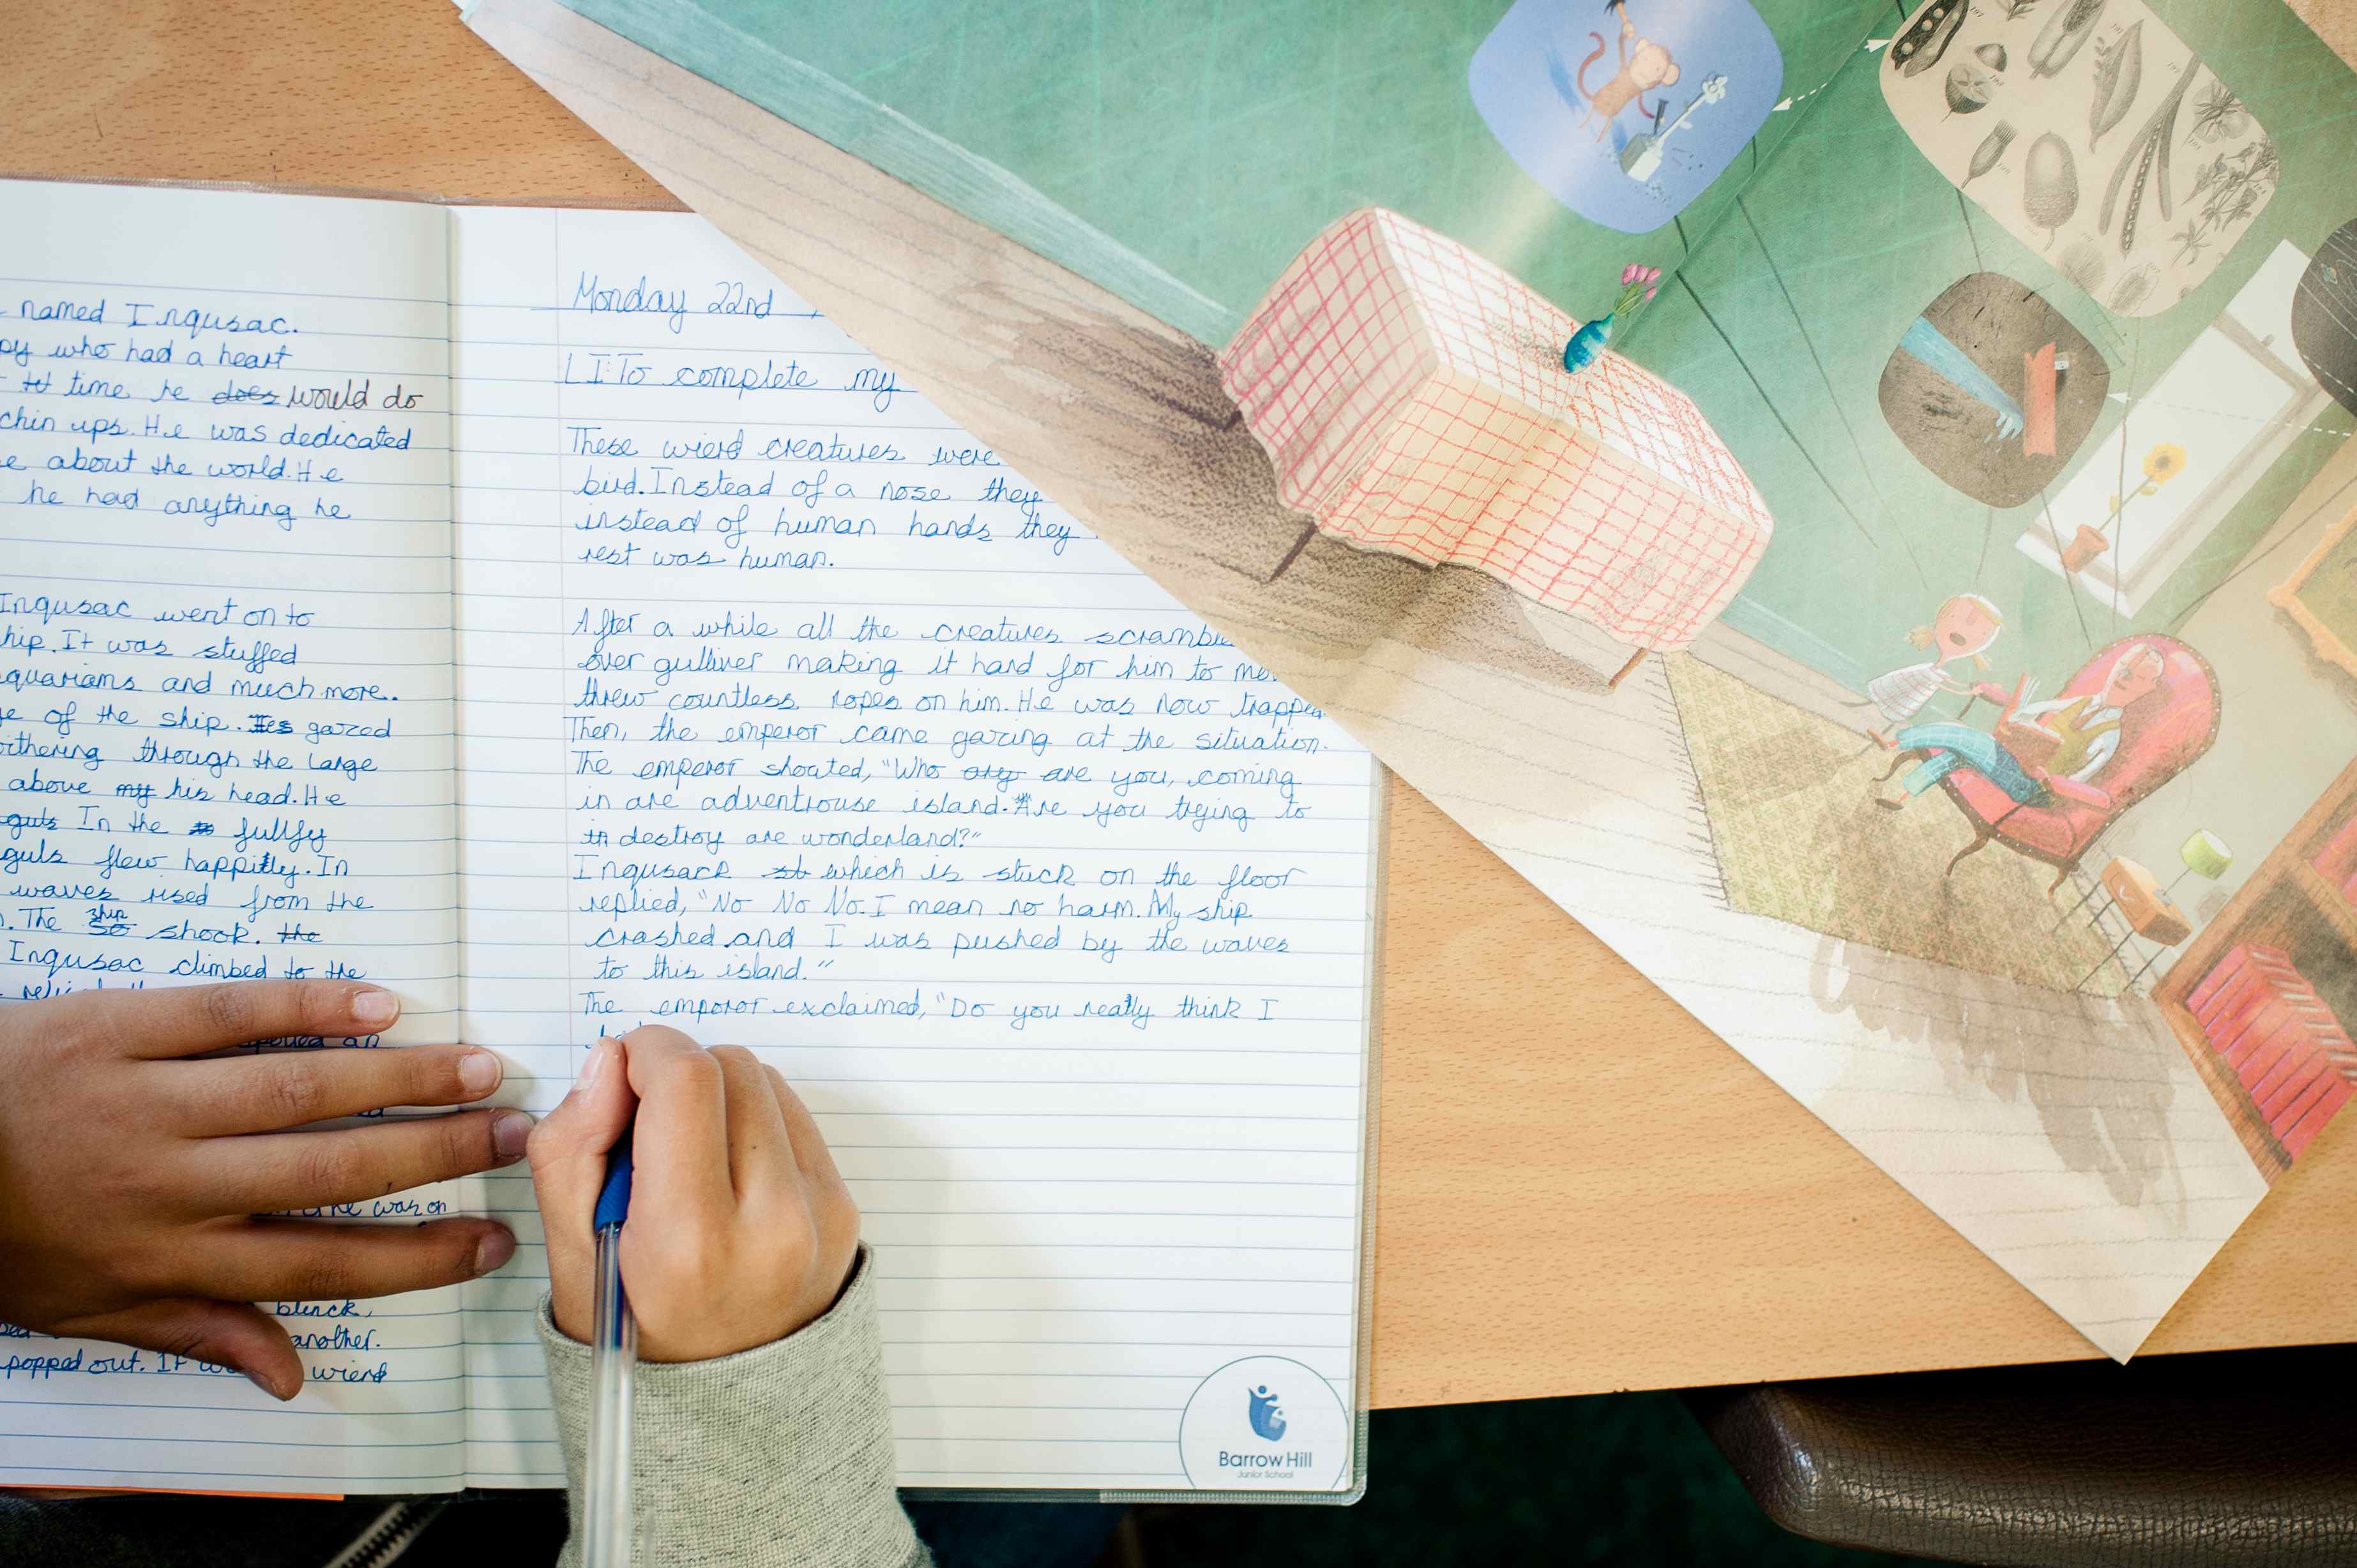 named Inqusac.
who had a heart
time he does would do
chin ups. He was dedicated
about the world. He
he had anything he
Inqusac went on to
It was stuffed
and much more.
of the ship. gazed
through the large
above my his head. He
In the fullfy
flew happitly. In
waves rised from the
The ship so shook. the
Inqusac climbed to the
an
was on
blinck,
another.
popped out. It wierd
Monday 22nd
LI: To complete my
These wierd creatures were
bird. Instead of a nose they
instead of human hands they
rest was human.
After a while all the creatures
over gulliver making it hard for him to
threw countless ropes on him. He was now
Then, the emperor came gazing at the situation.
The emperor shoated, "Who are you, coming
in are adventrouse island. Are you trying to
in destroy are wonderland?"
Inqusack st which is stuck on the floor
replied, "No No No. I mean no harm. My ship
crashed and I was pushed by the waves
to this island."
The emporor exclaimed, "Do you really think I
Barrow Hill
Junior School